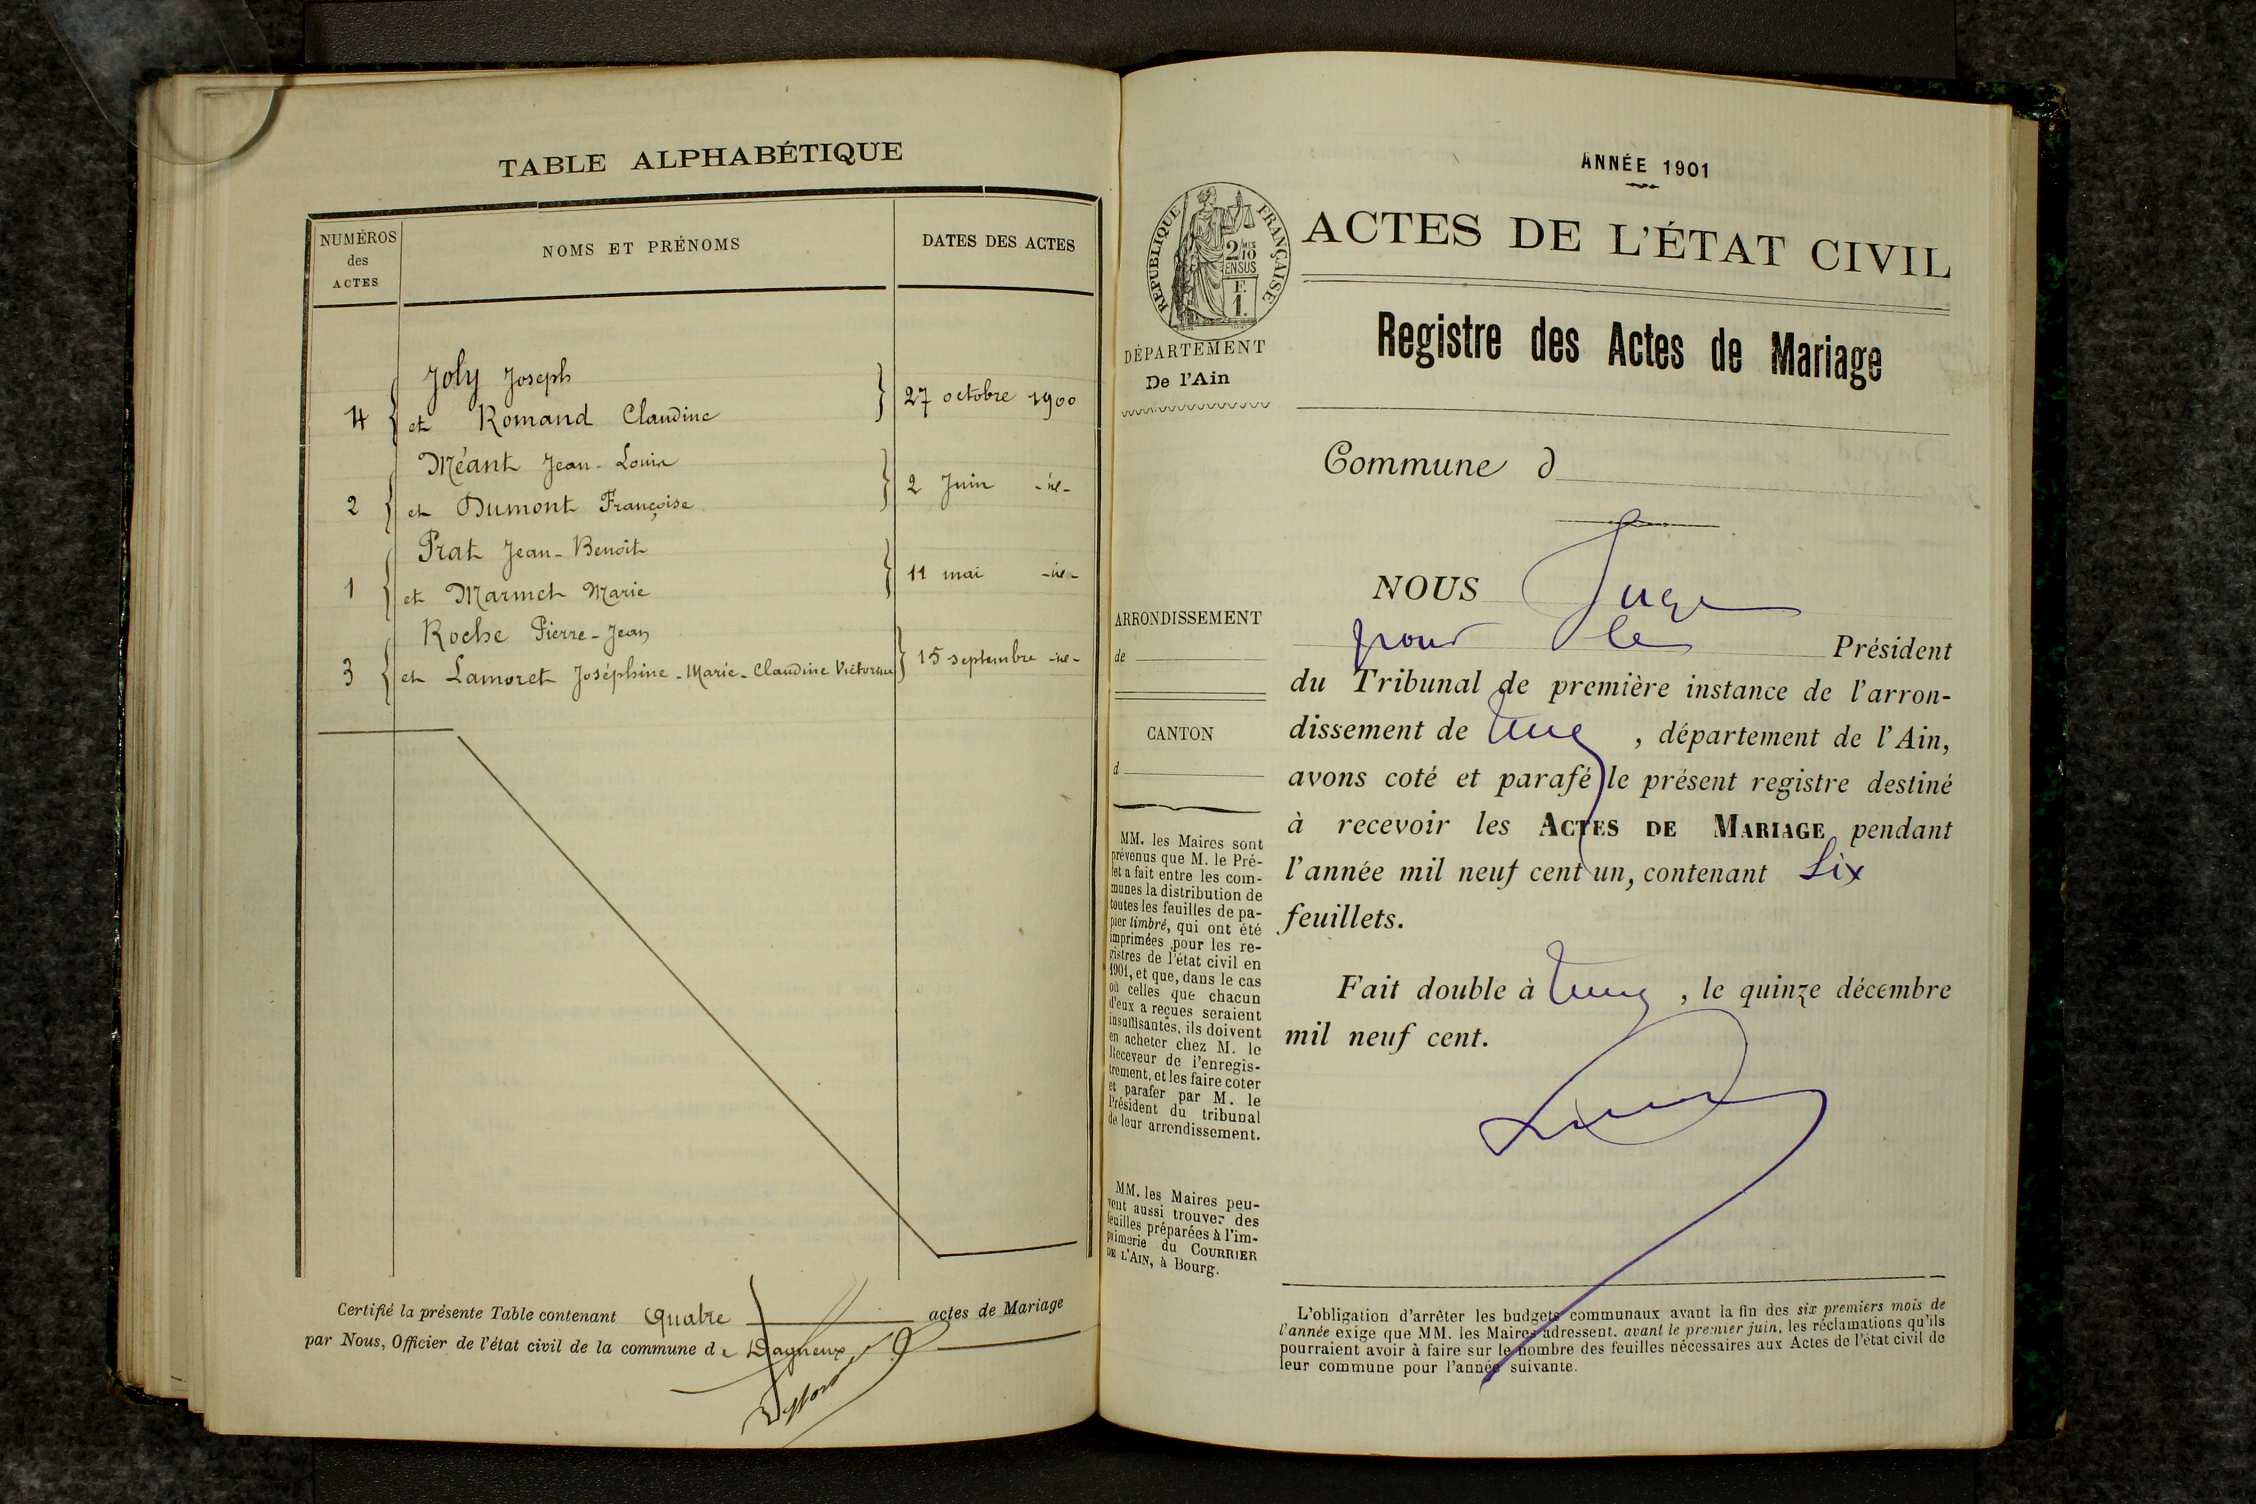 TABLE ALPHABÉTIQUE
NUMÉROS des ACTES
NOMS ET PRÉNOMS
DATES DES ACTES
4 Joly Joseph
et Romand Claudine
27 octobre 1900
2 Méant Jean-Louis
et Dumont Françoise
2 Juin
1 Prat Jean-Benoit
et Marmet Marie
11 mai
3 Roche Pierre-Jean
et Lamoret Joséphine-Marie-Claudine
15 septembre
Certifié la présente Table contenant Quatre actes de Mariage
par Nous, Officier de l'état civil de la commune de Dagneux
ANNÉE 1901
RÉPUBLIQUE FRANÇAISE
2/10 EN SUS
F. 1.
ACTES DE L'ÉTAT CIVIL
Registre des Actes de Mariage
DÉPARTEMENT
De l'Ain
Commune d
ARRONDISSEMENT
de
CANTON
d
MM. les Maires sont
prévenus que M. le Pré-
fet a fait entre les com-
munes la distribution de
toutes les feuilles de pa-
pier timbré, qui ont été
imprimées pour les re-
gistres de l'état civil en
1901, et que, dans le cas
où celles que chacun
d'eux a reçues seraient
insuffisantes, ils doivent
en acheter chez M. le
Receveur de l'enregis-
trement, et les faire coter
et parafer par M. le
Président du tribunal
de leur arrondissement.
MM. les Maires peu-
vent aussi trouver des
feuilles préparées à l'im-
primerie du COURRIER
DE L'AIN, à Bourg.
NOUS Juge
pour le Président
du Tribunal de première instance de l'arron-
dissement de , département de l'Ain,
avons coté et parafé le présent registre destiné
à recevoir les ACTES DE MARIAGE pendant
l'année mil neuf cent un, contenant Six
feuillets.
Fait double à , le quinze décembre
mil neuf cent.
L'obligation d'arrêter les budgets communaux avant la fin des six premiers mois de
l'année exige que MM. les Maires adressent, avant le premier juin, les réclamations qu'ils
pourraient avoir à faire sur le nombre des feuilles nécessaires aux Actes de l'état civil de
leur commune pour l'année suivante.